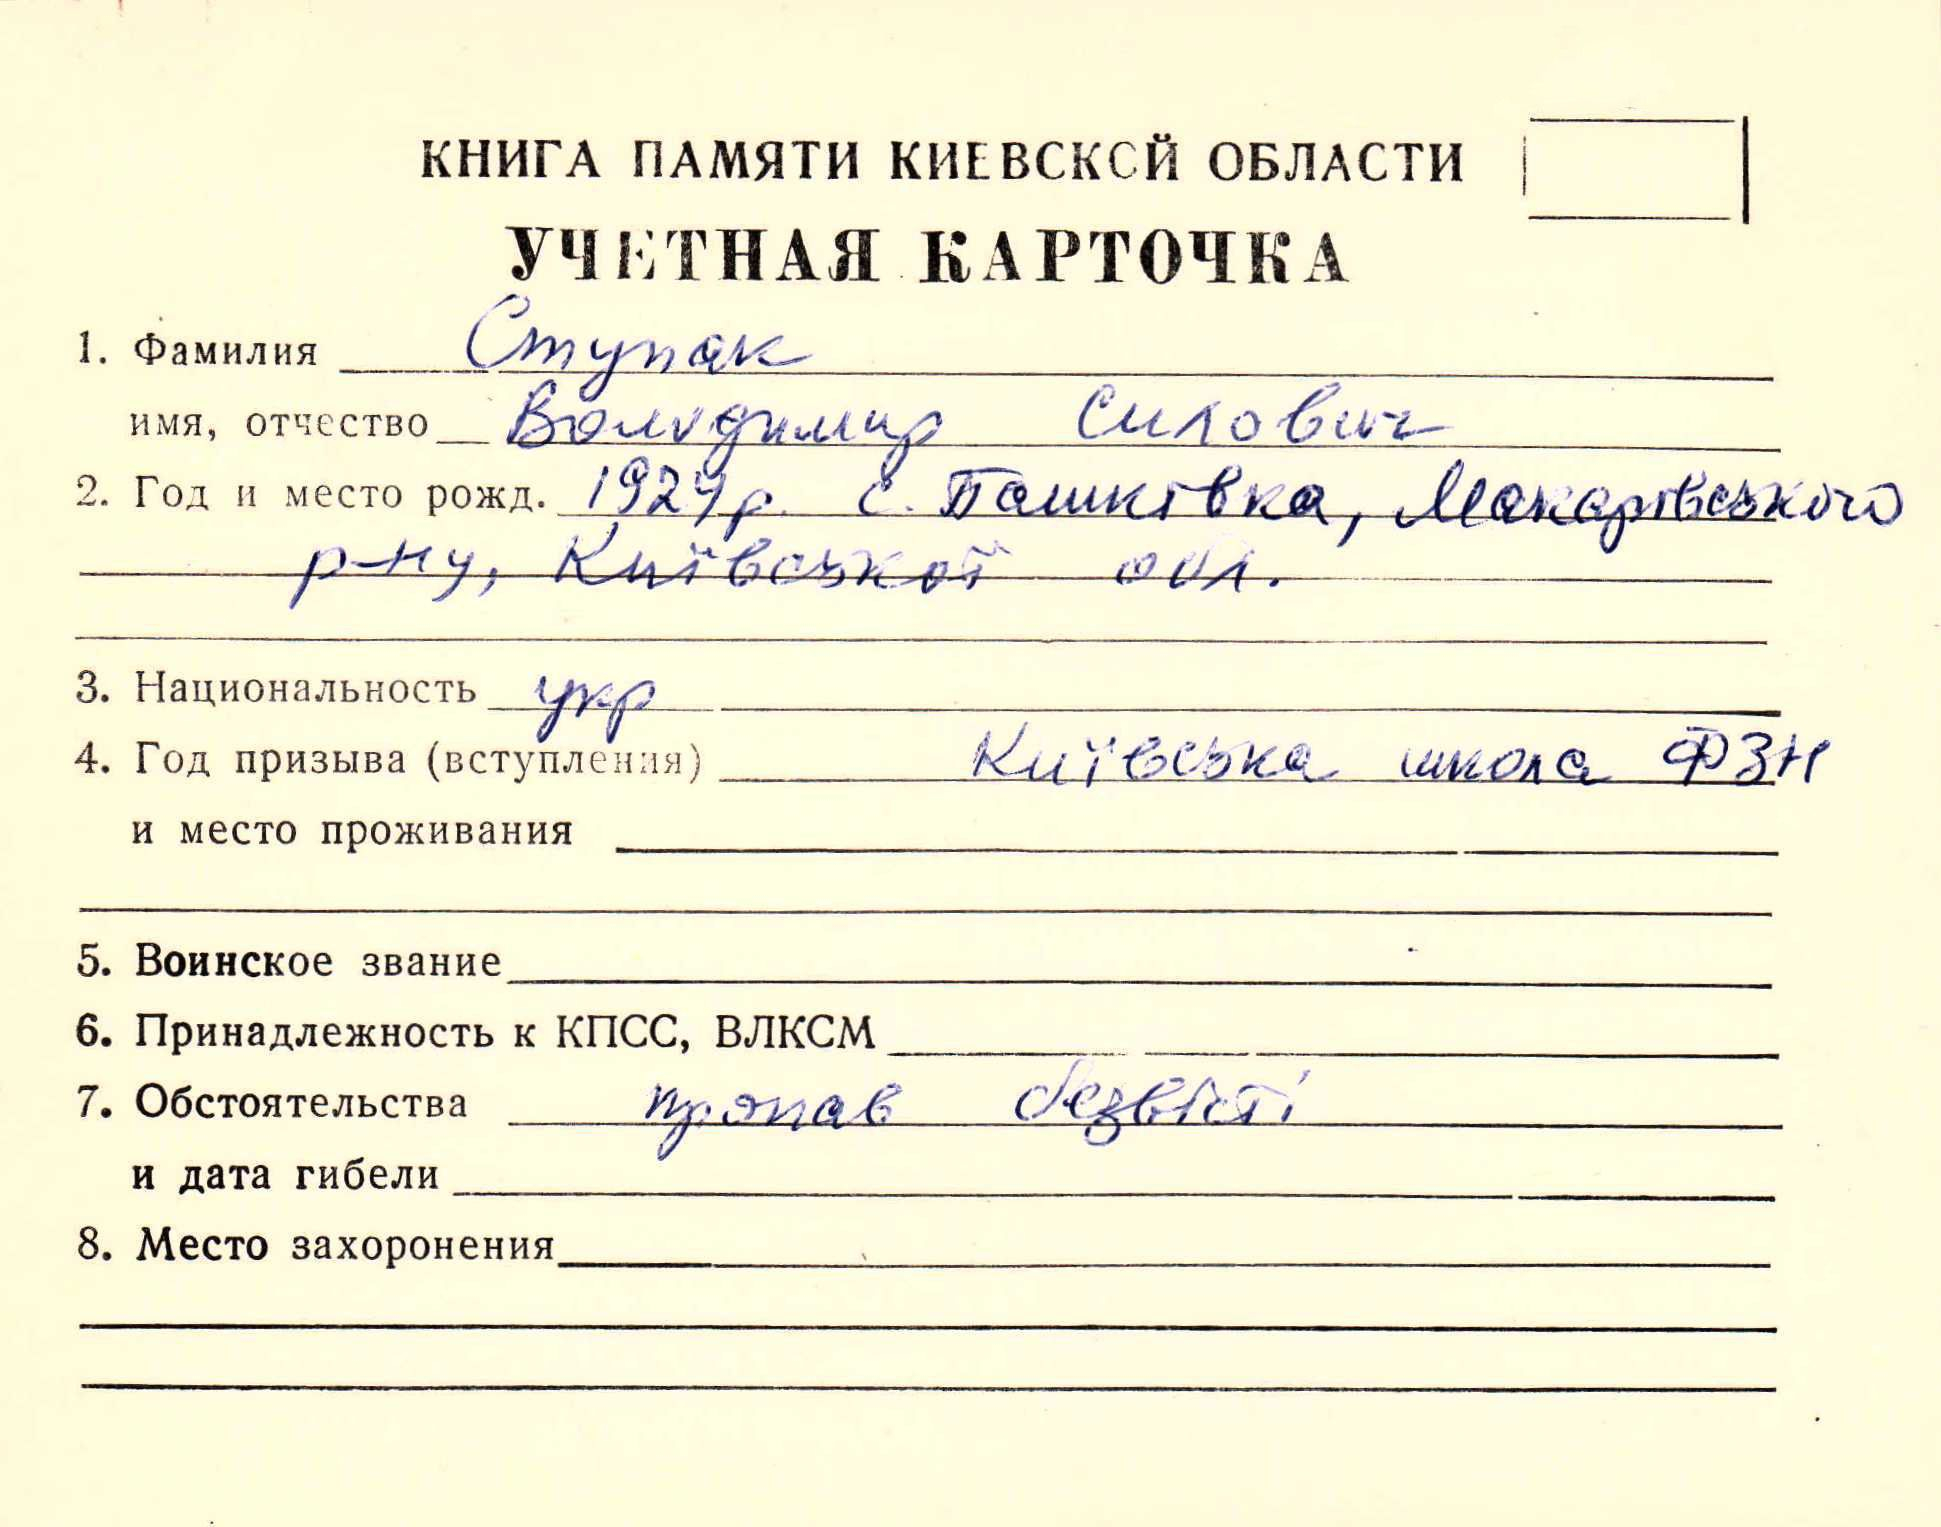 КНИГА ПАМЯТИ КИЕВСКОЙ ОБЛАСТИ
УЧЕТНАЯ КАРТОЧКА
1. Фамилия Ступак
имя, отчество Володимир Силович
2. Год и место рожд. 1924 р. с. Пашківка, Макарівського
р-ну, Київської обл.
3. Национальность укр
4. Год призыва (вступления) Київська школа ФЗН
и место проживания
5. Воинское звание
6. Принадлежность к КПСС, ВЛКСМ
7. Обстоятельства пропав безвісті
и дата гибели
8. Место захоронения